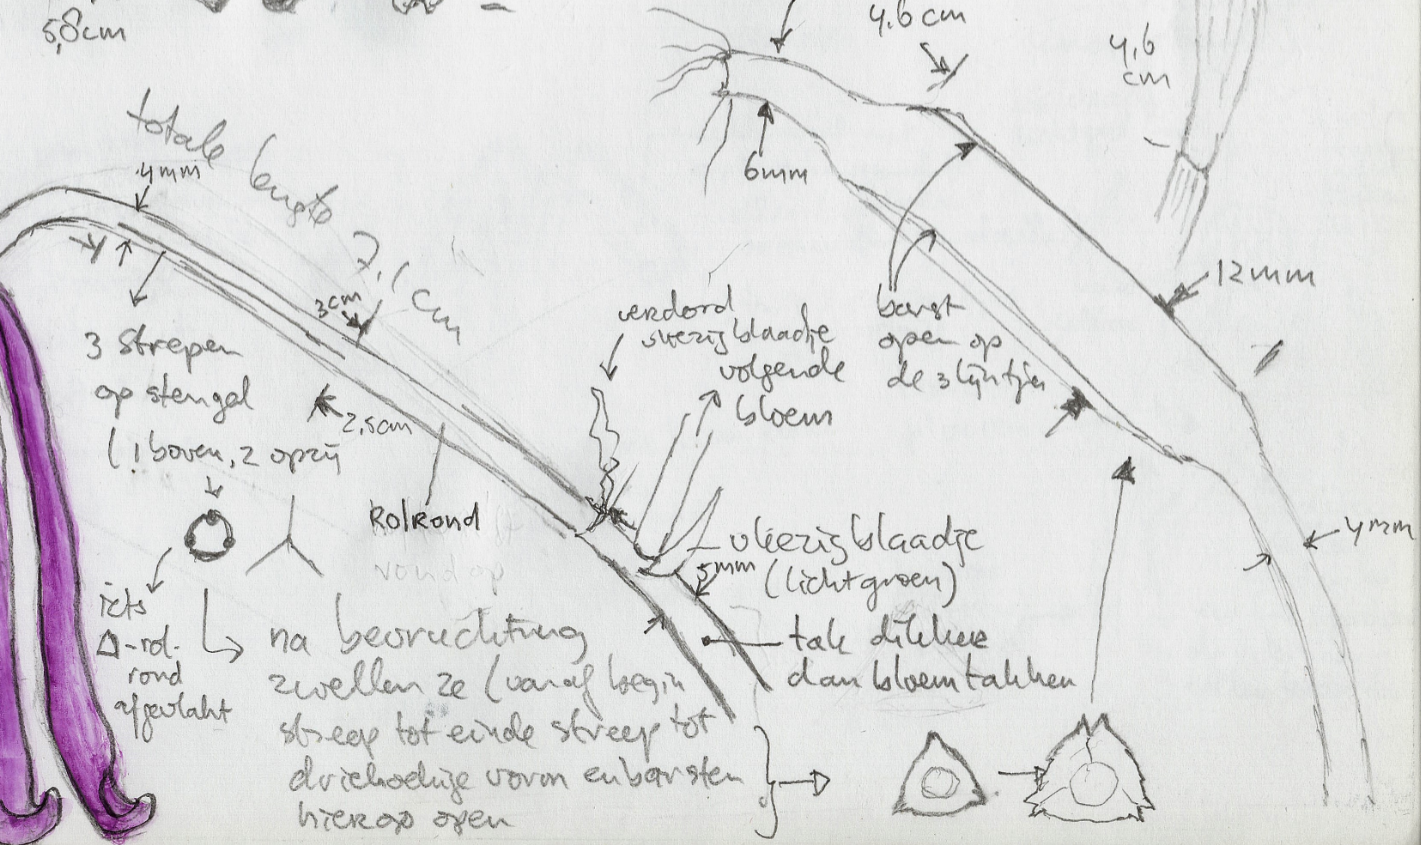 5,8cm
4.6 cm
4,6
cm
totale lengte 7,1 cm
4mm
6mm
12mm
3cm
3 strepen
op stengel
(1 boven, 2 opzij
2,5cm
verdord
vliezig blaadje
volgende
bloem
barst
open op
de 3 lijntjes
Rolrond
rond op
vliezig blaadje
(lichtgroen)
5mm
4mm
iets
Δ-rol-
rond
afgevlakt
tak dikker
dan bloemtakken
na bevruchting
zwellen ze (vanaf begin
streep tot einde streep tot
driehoekige vorm en barsten
hierop open